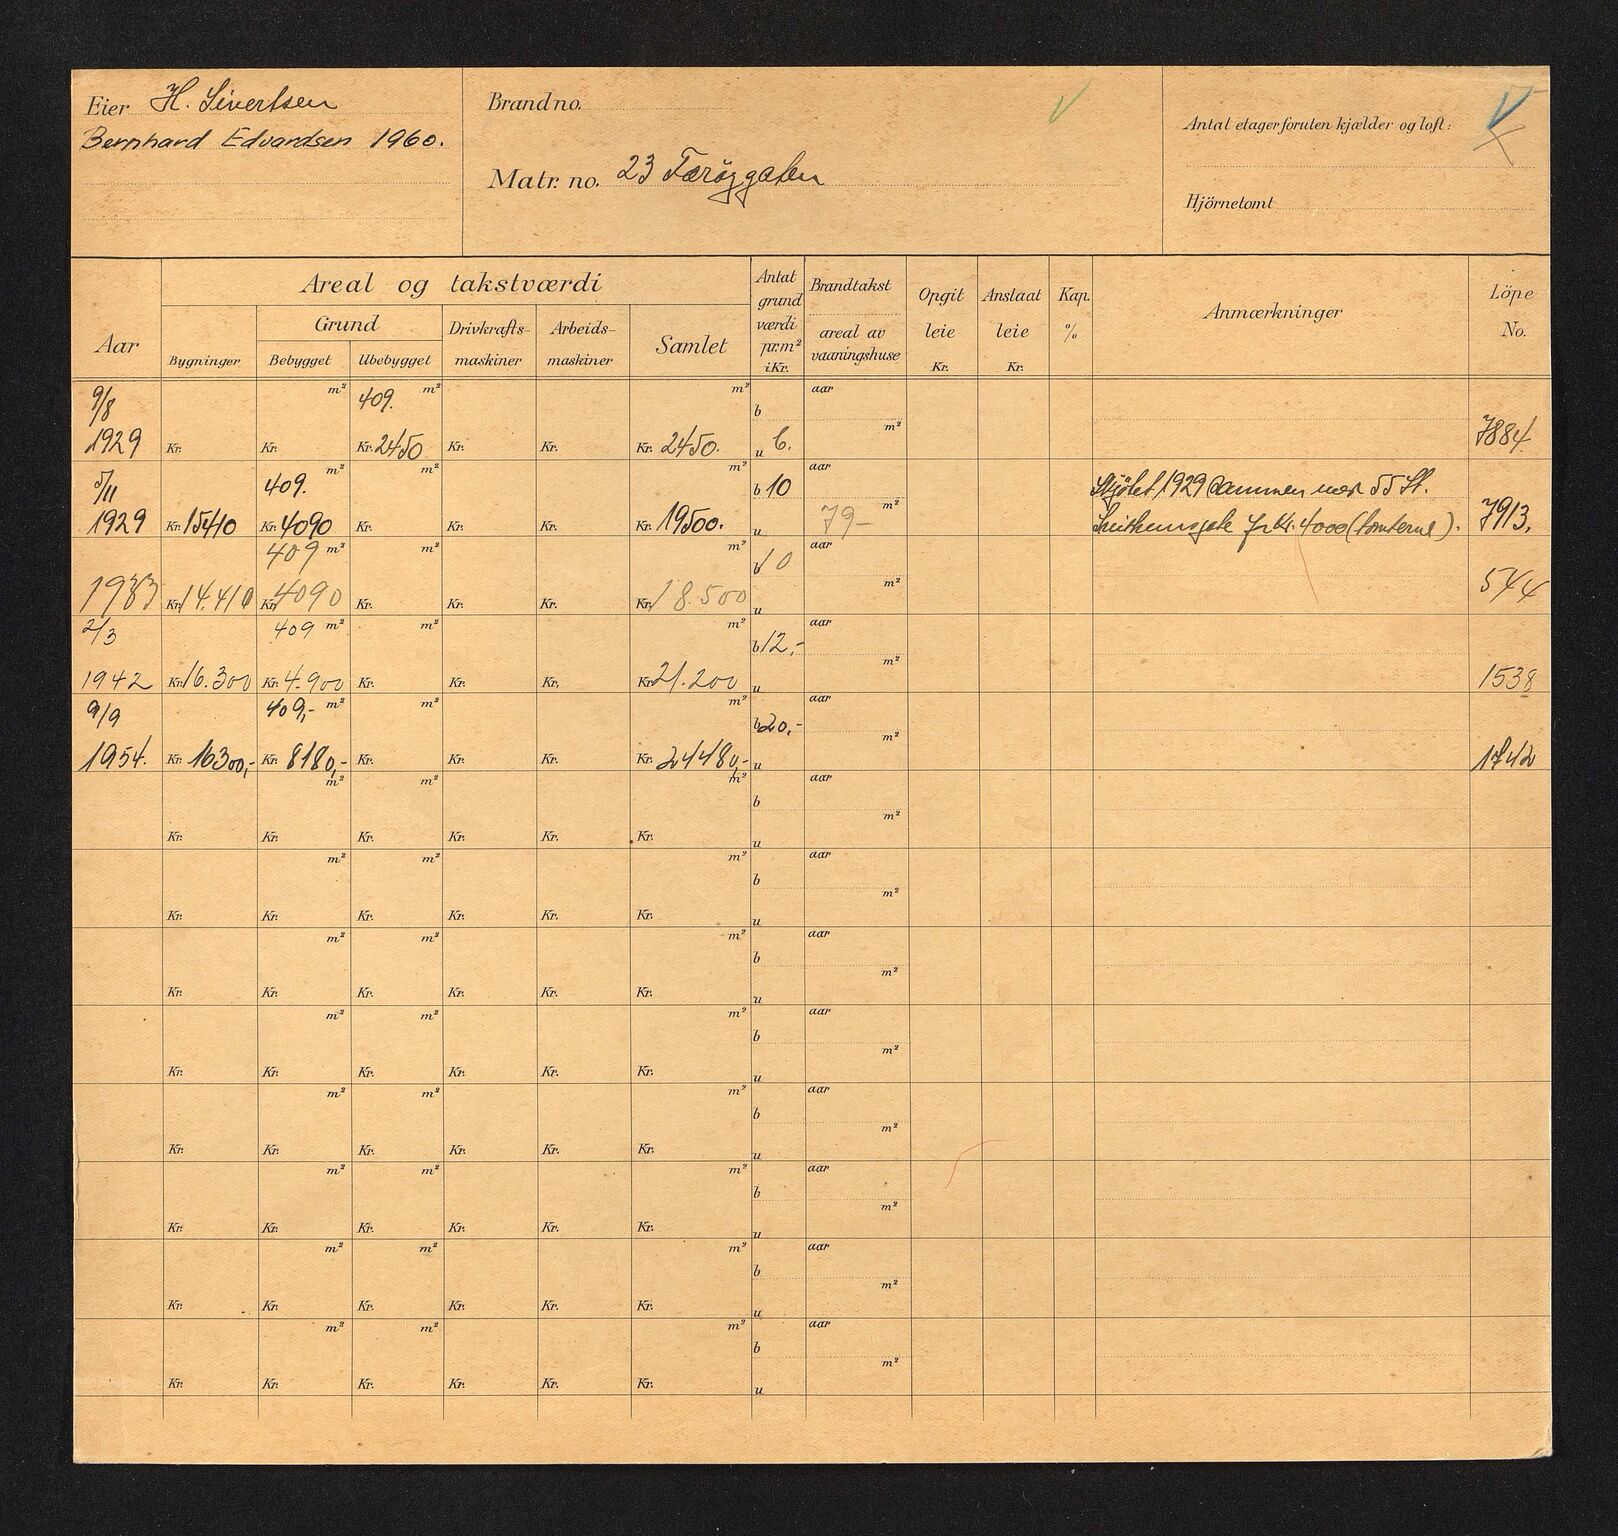 Eier H. Sivertsen
Bernhard Edvardsen 1960.
Brand no.
Matr. no. 23 Færøygaten
Antal etager foruten kjælder og loft:
Hjörnetomt
Aar
Areal og takstværdi
Bygninger
Grund
Bebygget
Ubebygget
Drivkrafts-
maskiner
Arbeids-
maskiner
Samlet
Antat
grund
værdi
pr. m²
i Kr.
Brandtakst
areal av
vaaningshuse
Opgit
leie
Kr.
Anslaat
leie
Kr.
Kap.
%
Anmærkninger
Löpe
No.
9/8 m² 409. m² m² b aar
1929 Kr. Kr. Kr. 2450 Kr. Kr. Kr. 2450. u 6. m² 7884
5/11 409. m² m² m² b 10 aar Skjötet 1929 sammen med 55 St.
1929 Kr. 15410 Kr. 4090 Kr. Kr. Kr. 19500. u 79- m² gate for Kr. 4000 (tomterne). 7913.
409 m² m² m² b 10 aar
1933 Kr. 14.410 Kr. 4090 Kr. Kr. Kr. Kr. 18.500 u m² 544
2/3 409 m² m² m² b 12,- aar
1942 Kr. 16.300 Kr. 4.900 Kr. Kr. Kr. Kr. 21.200 u m² 1538
9/9 409,- m² m² m² b 20,- aar
1954. Kr. 16300,- Kr. 8180,- Kr. Kr. Kr. Kr. 24480,- u m² 1742
m² m² m² b aar
Kr. Kr. Kr. Kr. Kr. Kr. u m²
m² m² m² b aar
Kr. Kr. Kr. Kr. Kr. Kr. u m²
m² m² m² b aar
Kr. Kr. Kr. Kr. Kr. Kr. u m²
m² m² m² b aar
Kr. Kr. Kr. Kr. Kr. Kr. u m²
m² m² m² b aar
Kr. Kr. Kr. Kr. Kr. Kr. u m²
m² m² m² b aar
Kr. Kr. Kr. Kr. Kr. Kr. u m²
m² m² m² b aar
Kr. Kr. Kr. Kr. Kr. Kr. u m²
m² m² m² b aar
Kr. Kr. Kr. Kr. Kr. Kr. u m²